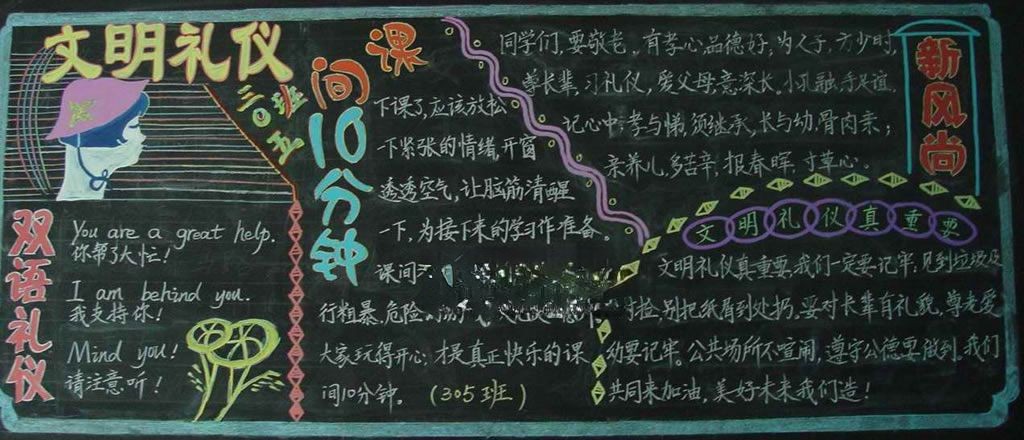 文明礼仪
三〇五班
双语礼仪
You are a great help.
你帮了大忙！
I am behind you.
我支持你！
Mind you!
请注意听！
课间10分钟
下课了，应该放松
一下紧张的情绪，开窗
透透空气，让脑筋清醒
一下，为接下来的学习作准备。
课间
行粗暴、危险
大家玩得开心，才是真正快乐的课
间10分钟。（305班）
新风尚
同学们，要敬老，有孝心，品德好，为人子，方少时，
尊长辈，习礼仪，爱父母，意深长，小孔融，手足谊，
记心中，孝与悌，须继承，长与幼，骨肉亲；
亲养儿，多苦辛，报春晖，寸草心。
文明礼仪真重要
文明礼仪真重要，我们一定要记牢，见到垃圾及
时捡，别把纸屑到处扔，要对长辈有礼貌，尊老爱
幼要记牢。公共场所不喧闹，遵守公德要做到。我们
共同来加油，美好未来我们造！